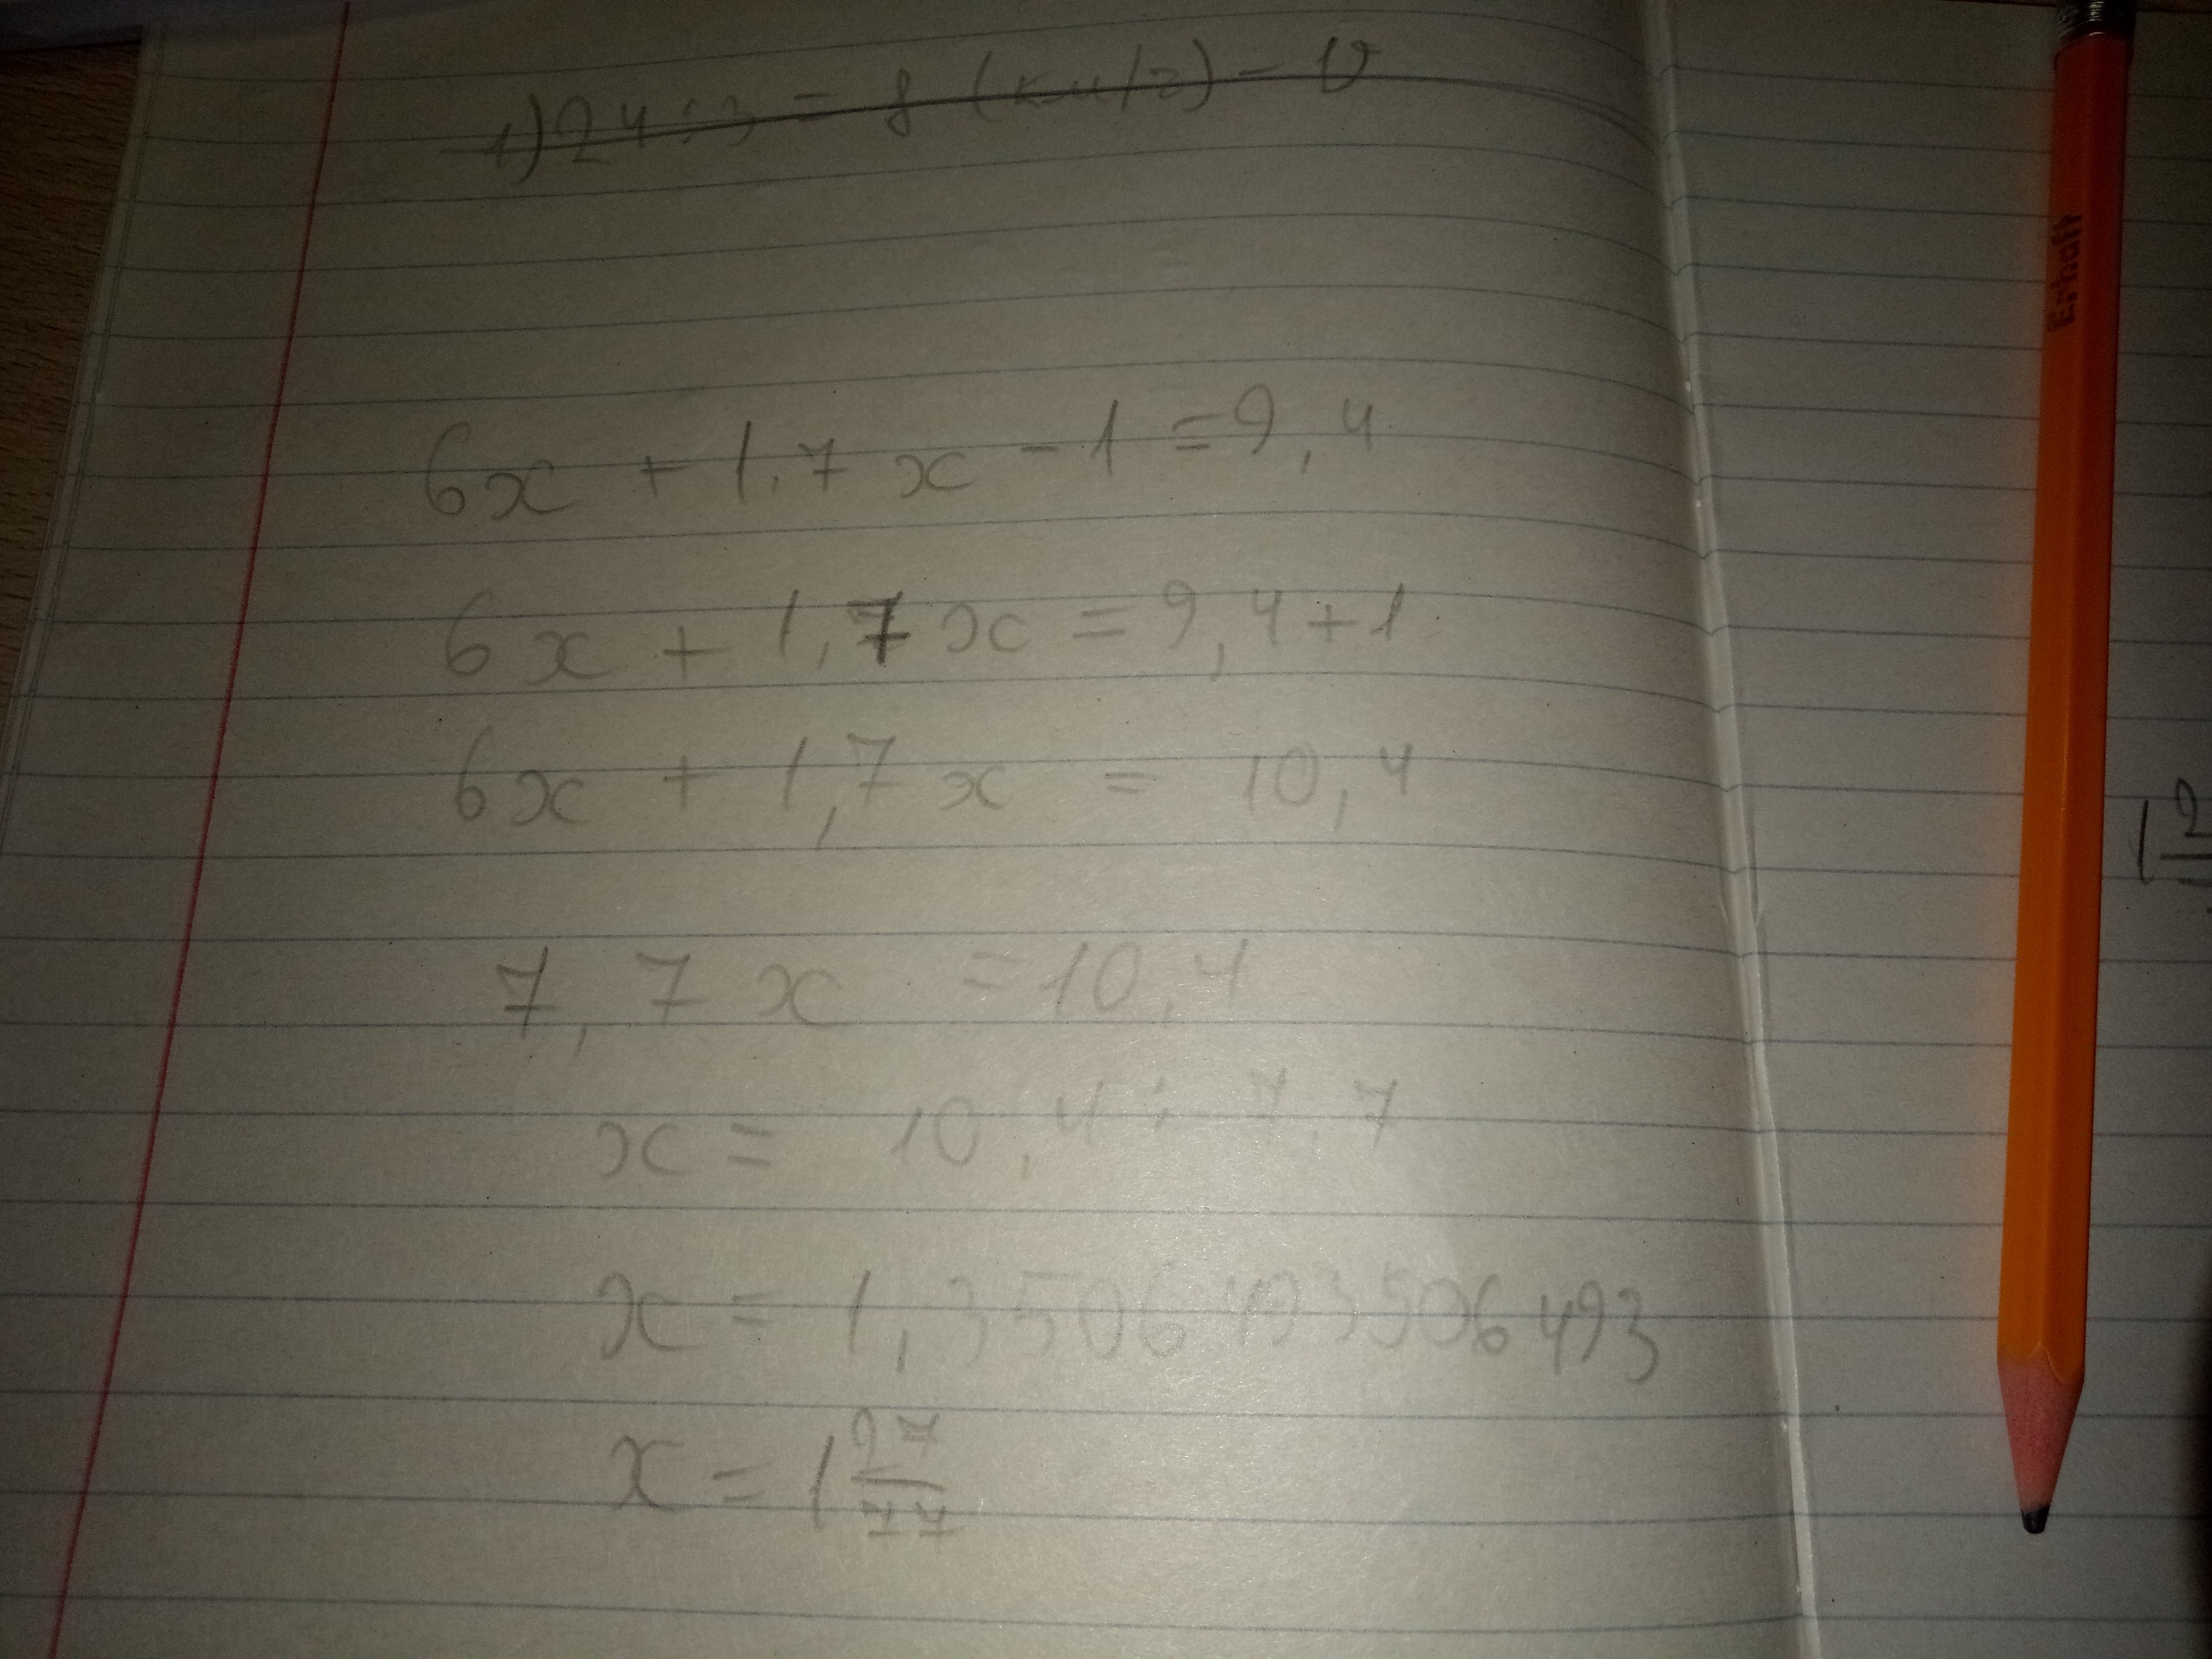 1) 24 : 3 = 8 (км/г) - V
6x + 1.7x - 1 = 9,4
6x + 1,7x = 9,4 + 1
6x + 1,7x = 10,4
7,7x = 10,4
x = 10,4 : 7,7
x = 1,3506493506493
x = 1 27/77
Erhaft